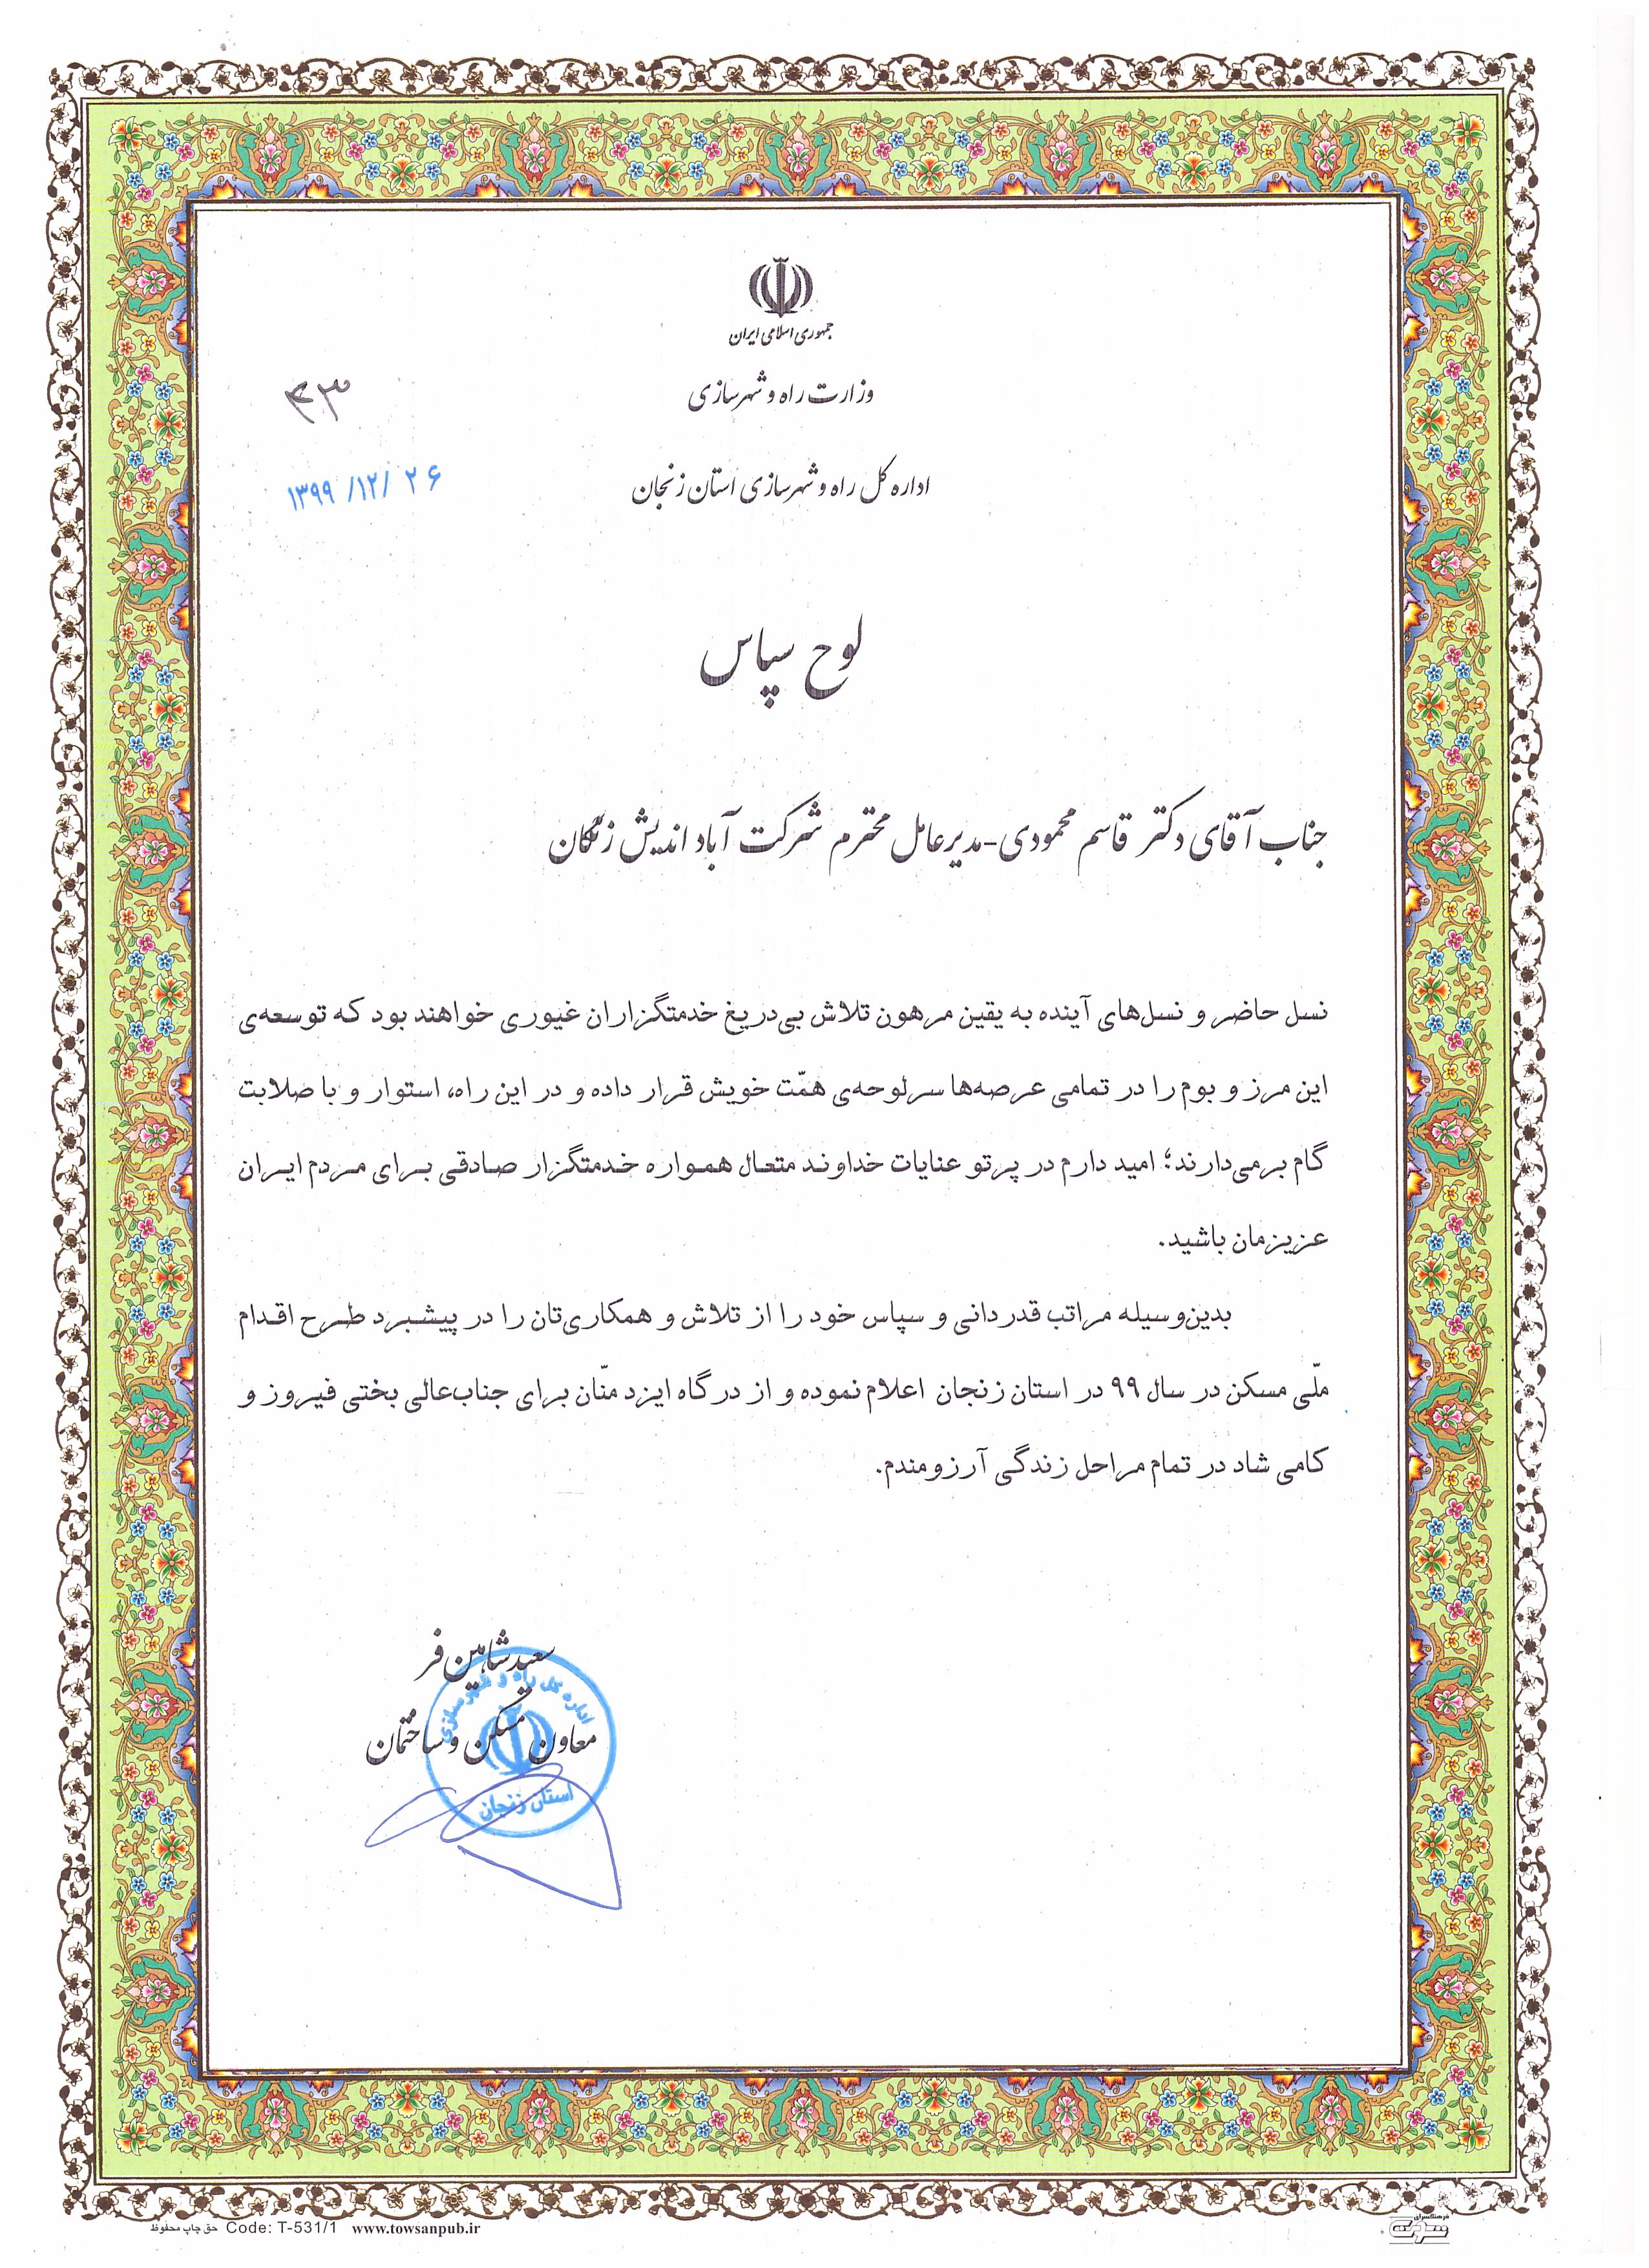 جمهوری اسلامی ایران
وزارت راه و شهرسازی
۴۳
اداره کل راه و شهرسازی استان زنجان
۱۳۹۹/۱۲/۲۶
لوح سپاس
جناب آقای دکتر قاسم محمودی-مدیرعامل محترم شرکت آباد اندیش زنگان
نسل حاضر و نسل‌های آینده به یقین مرهون تلاش بی‌دریغ خدمتگزاران غیوری خواهند بود که توسعه‌ی
این مرز و بوم را در تمامی عرصه‌ها سرلوحه‌ی همّت خویش قرار داده و در این راه، استوار و با صلابت
گام برمی‌دارند؛ امید دارم در پرتو عنایات خداوند متعال همواره خدمتگزار صادقی برای مردم ایران
عزیزمان باشید.
بدین‌وسیله مراتب قدردانی و سپاس خود را از تلاش و همکاری‌تان را در پیشبرد طرح اقدام
ملّی مسکن در سال ۹۹ در استان زنجان اعلام نموده و از درگاه ایزد منّان برای جناب‌عالی بختی فیروز و
کامی شاد در تمام مراحل زندگی آرزومندم.
سعید شاهین فر
معاون مسکن و ساختمان
اداره کل راه و شهرسازی
استان زنجان
حق چاپ محفوظ Code: T-531/1 www.towsanpub.ir